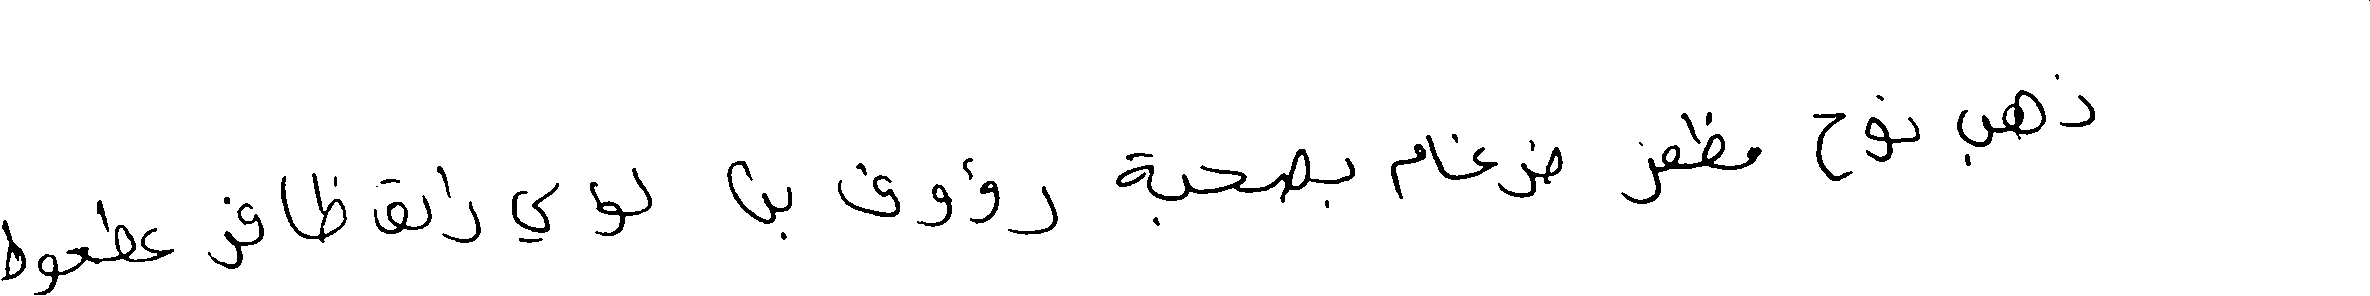 ذهب نوح مظفر ضرغام بصحبة رؤوف بن لؤي رائق ظافر عطعوط